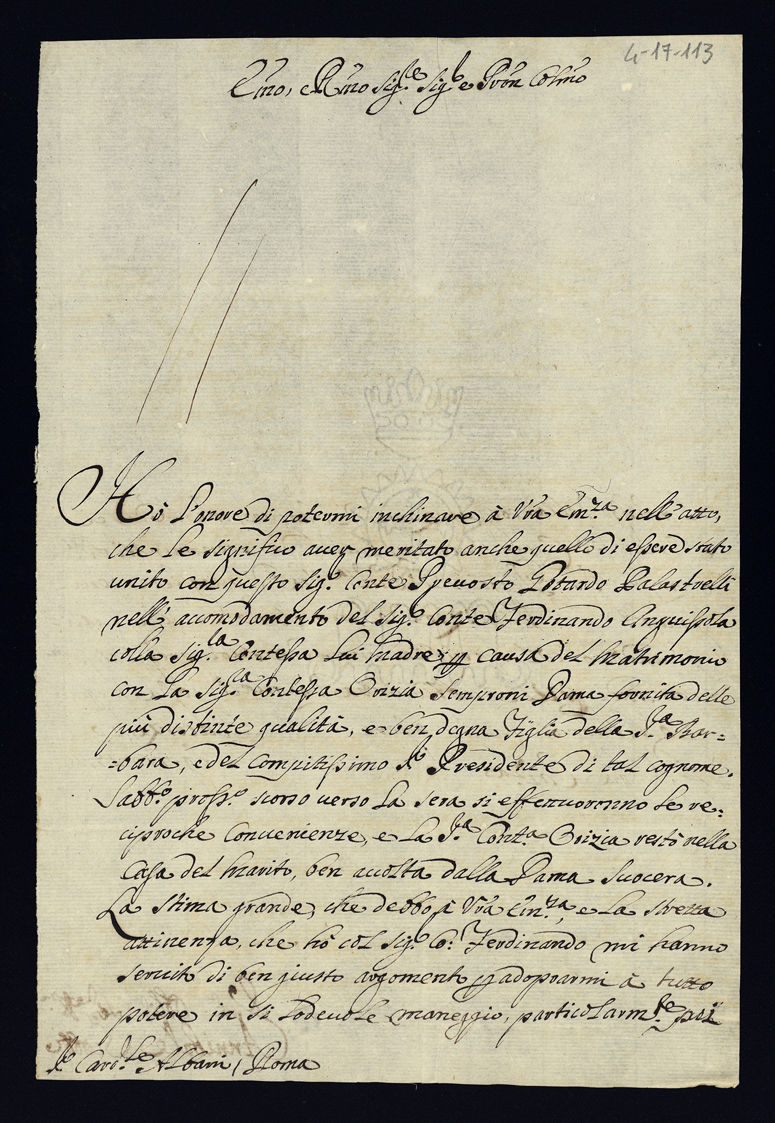 4-17-113
Emo, e Rmo Sig.re Sig.r e Pron Colmo
Hò l'onore di potermi inchinare à Vra Em.za nell'atto,
che le significo aver meritato anche quello di essere stato
unito con questo Sig.r Conte Prevosto Gottardo Palastrelli
nell'accomodamento del Sig.r Conte Ferdinando Anguissola
colla Sig.ra Contessa Lui Madre p causa del Matrimonio
con la Sig.ra Contessa Orizia Semproni Dama fornita delle
più distinte qualità, e ben degna Figlia della S.ra Bar=
=bara, e del Compitissimo S.r Presidente di tal cognome.
Sabb.o pross.o scorso verso la sera si effettuoronno le re=
ciproche Convenienze, e la S.ra Cont.a Orizia restò nella
Casa del Marito, ben accolta dalla Dama Suocera.
La stima grande, che debbo à Vra Em.za, e la stretta
attinenza, che hò col Sig.r Co: Ferdinando mi hanno
servito di ben giusto argomento p adoprarmi à tutto
potere in sì lodevole maneggio, particolarm.te poi
Card.le Albani / Roma